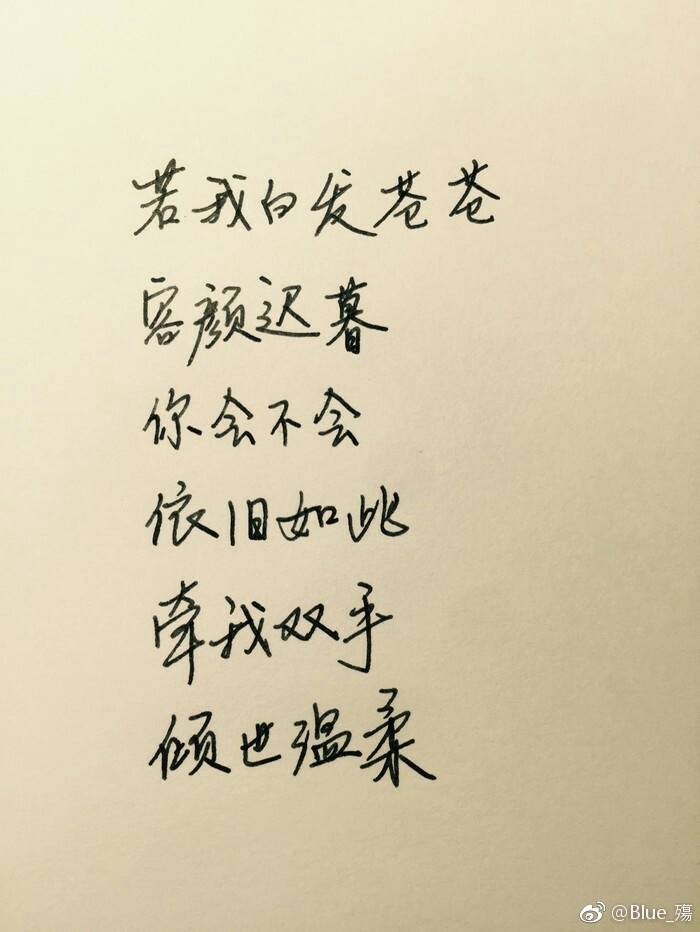 若我白发苍苍
容颜迟暮
你会不会
依旧如此
牵我双手
倾世温柔
@Blue_殤